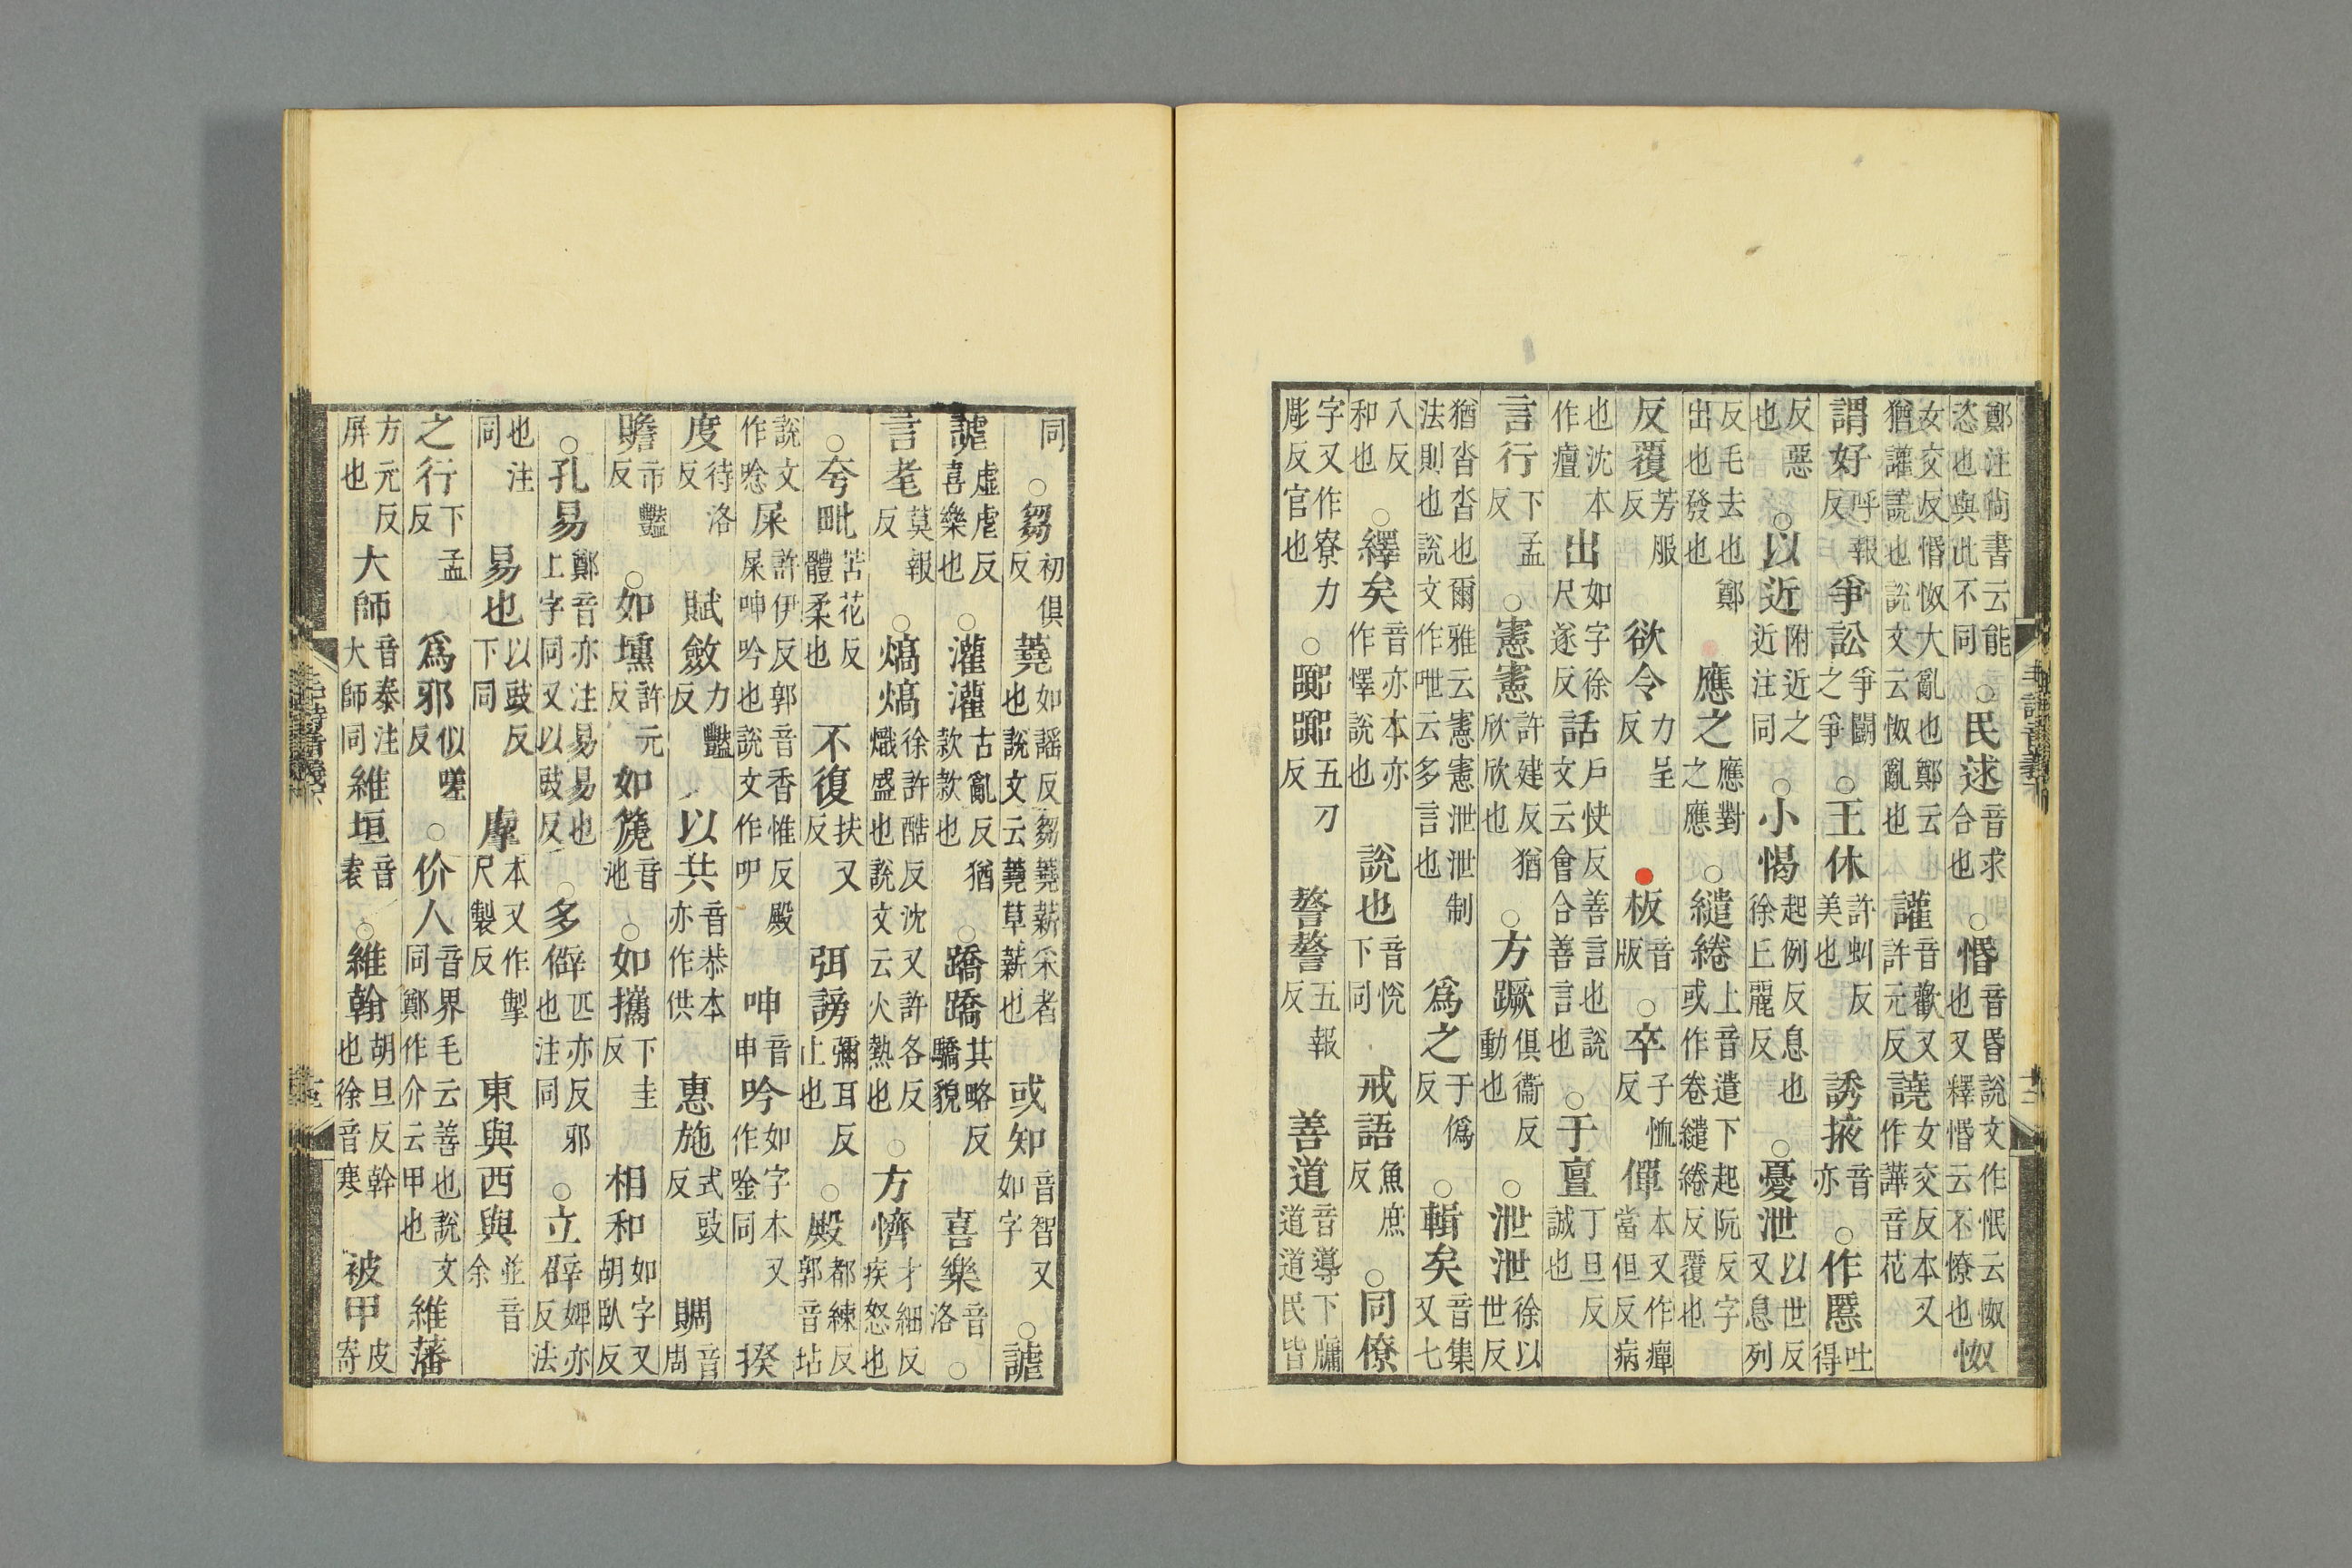 鄭注尙書云能恣也與此不同○民逑音求合也○惛音昬說文作怋云怓也又釋惛云不憭也怓
女交反惛怓大亂也鄭云猶讙譊也說文云怓亂也讙音歡又許元反譊女交反本又作譁音花
謂好呼報反爭訟爭鬬之爭○王休許虯反美也誘掖音亦○作慝吐得
反惡也○以近附近之近注同○小愒起例反息也徐丘麗反○憂泄以世反又息列
反毛去也鄭出也發也應之應對之應○繾綣上音遣下起阮反字或作卷繾綣反覆也
反覆芳服反欲令力呈反●板音版○卒子恤反僤本又作癉當但反病
也沈本作㿊出如字徐尺遂反話戶快反善言也說文云會合善言也○于亶丁旦反誠也
言行下孟反○憲憲許建反猶欣欣也○方蹶俱衞反動也○泄泄徐以世反
猶沓沓也爾雅云憲憲泄泄制法則也說文作呭云多言也爲之于僞反○輯矣音集又七
入反和也○繹矣音亦本亦作懌說也說也音悅下同戒語魚庶反○同僚
字又作寮力彫反官也○嘂嘂五刀反警警五報反善道音導下牖道道民皆
同○芻初俱反蕘如謠反芻蕘薪采者也說文云蕘草薪也或知音智又如字○謔
謔虛虐反喜樂也○灌灌古亂反猶款款也○蹻蹻其略反驕貌喜樂音洛○
言耄莫報反○熇熇徐許酷反沈又許各反熾盛也說文云火熱也○方懠才細反疾怒也
○夸毗苦花反體柔也不復扶又反弭謗彌耳反止也○殿都練反郭音坫
說文作唸屎許伊反郭音香惟反殿屎呻吟也說文作吚呻音申吟如字本又作唫同揆
度待洛反賦斂力豔反以共音恭本亦作供惠施式豉反賙音周
贍市豔反○如壎許元反如篪音池○如攜下圭反相和如字又胡臥反
○孔易鄭音亦注易易也上字同又以豉反○多僻匹亦反邪也注同○立辟婢亦反法
也注同易也以豉反下同摩本又作掣尺製反東與西與並音余
之行下孟反爲邪似嗟反○价人音界毛云善也說文同鄭作介云甲也維藩
方元反屏也大師音泰注大師同維垣音袁○維翰胡旦反幹也徐音寒被甲皮寄